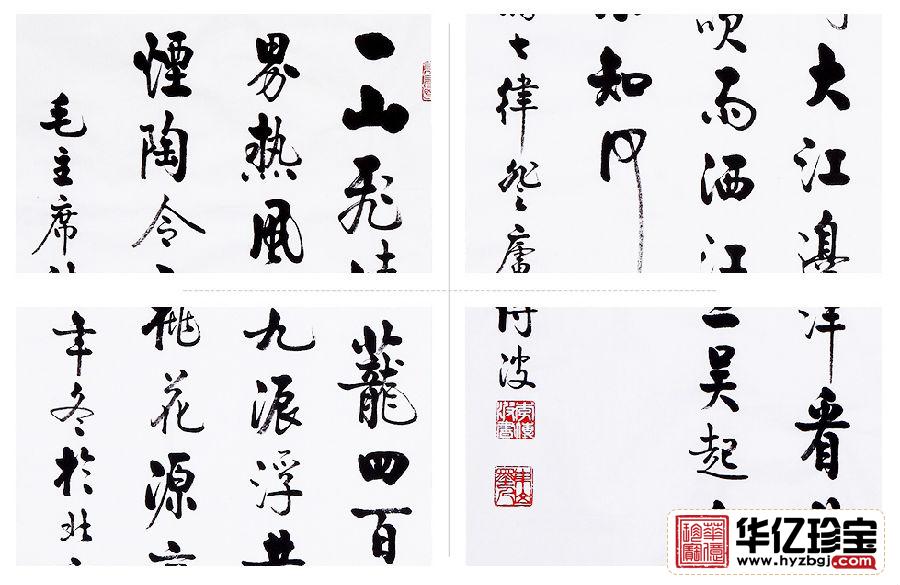 一山飛峙
界熱風
煙陶令
毛主席
大江邊
吹雨洒江
知何
七律登廬
蘢四百
九派浮
桃花源
年冬於北
洋看
三吳起
波
华亿珍宝
www.hyzbgj.com